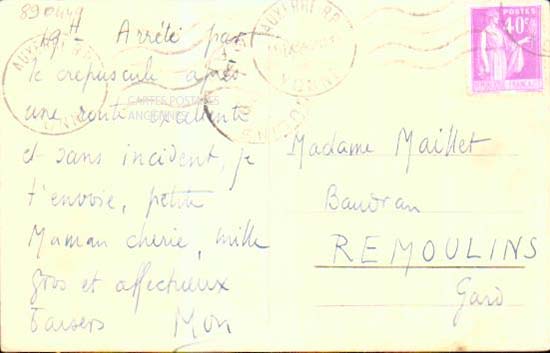 890449
19H Arrêté par
le crépuscule après
une route excellente
et sans incident, je
t'envoie, petite
Maman chérie, mille
gros et affectueux
baisers Mon
CARTES POSTALES
ANCIENNES
AUXERRE R.P.
YONNE
40c
Madame Maillet
Baudran
REMOULINS
Gard